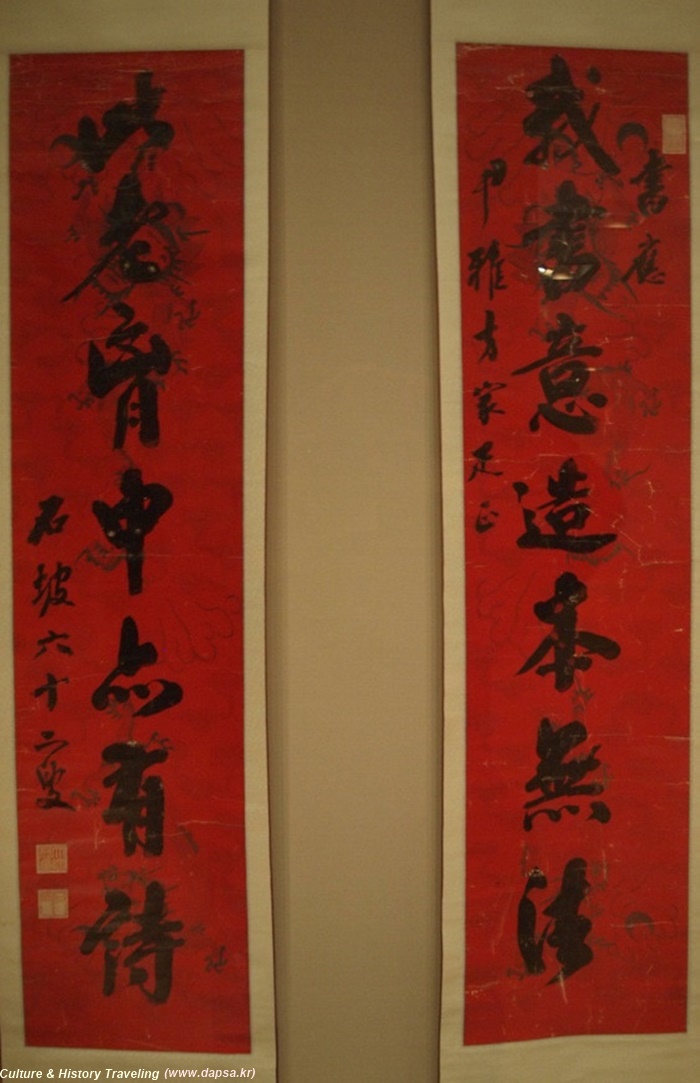 書應
我書意造本無法
雅方家疋正
此老胷中亦有詩
石坡六十二叟
Culture & History Traveling (www.dapsa.kr)